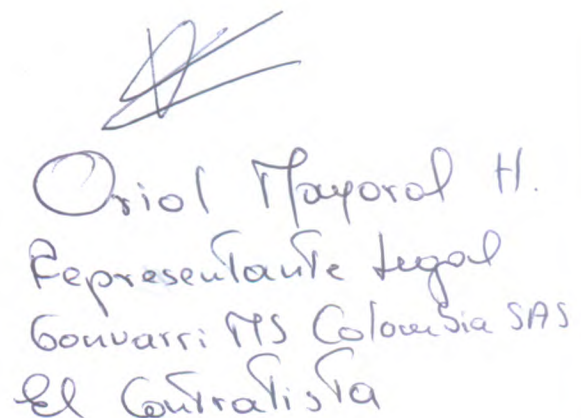 Oriol Mayoral H.
Representante Legal
Gonvarri MS Colombia SAS
El Contratista